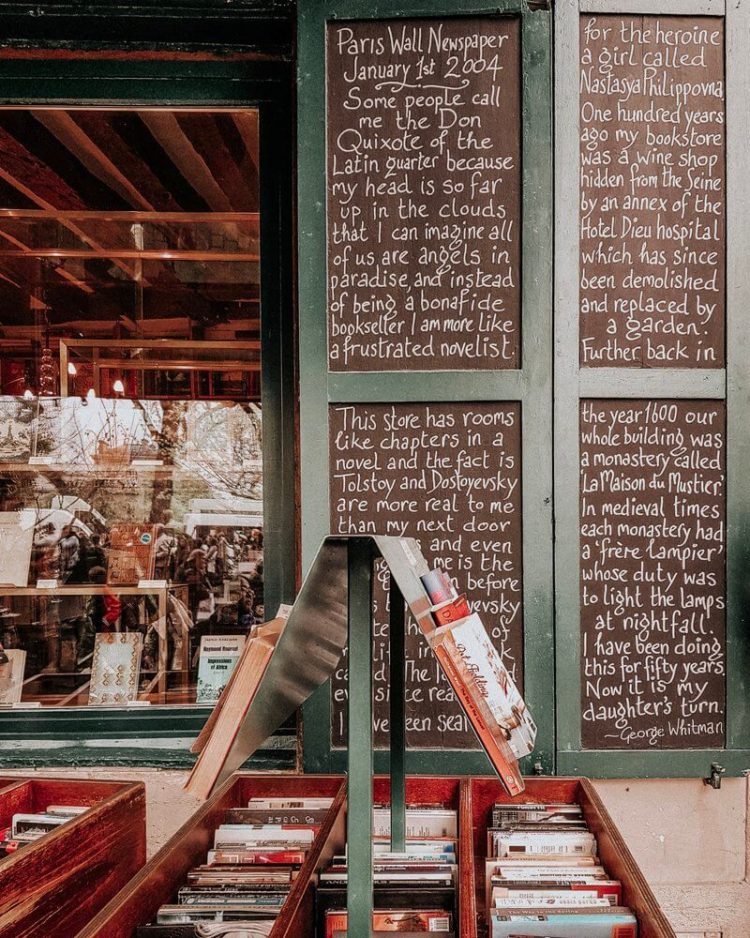 Paris Wall Newspaper
January 1st 2004
Some people call
me the Don
Quixote of the
Latin quarter because
my head is so far
up in the clouds
that I can imagine all
of us are angels in
paradise, and instead
of being a bonafide
bookseller I am more like
a frustrated novelist.
This store has rooms
like chapters in a
novel and the fact is
Tolstoy and Dostoyevsky
are more real to me
than my next door
and even
me is the
before
of
ever since rea
I een sea
for the heroine
a girl called
Nastasya Philippovna
One hundred years
ago my bookstore
was a wine shop
hidden from the Seine
by an annex of the
Hotel Dieu hospital
which has since
been demolished
and replaced by
a garden.
Further back in
the year 1600 our
whole building was
a monastery called
'La Maison du Mustier'.
In medieval times
each monastery had
a 'frère lampier'
whose duty was
to light the lamps
at nightfall.
I have been doing
this for fifty years
Now it is my
daughter's turn.
~George Whitman
Raymond Roussel
Impressions
of Africa